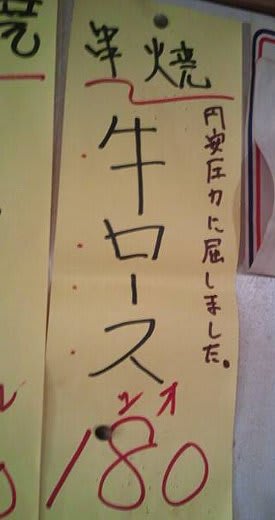 串焼
円安圧力に屈しました。
牛ロース
180